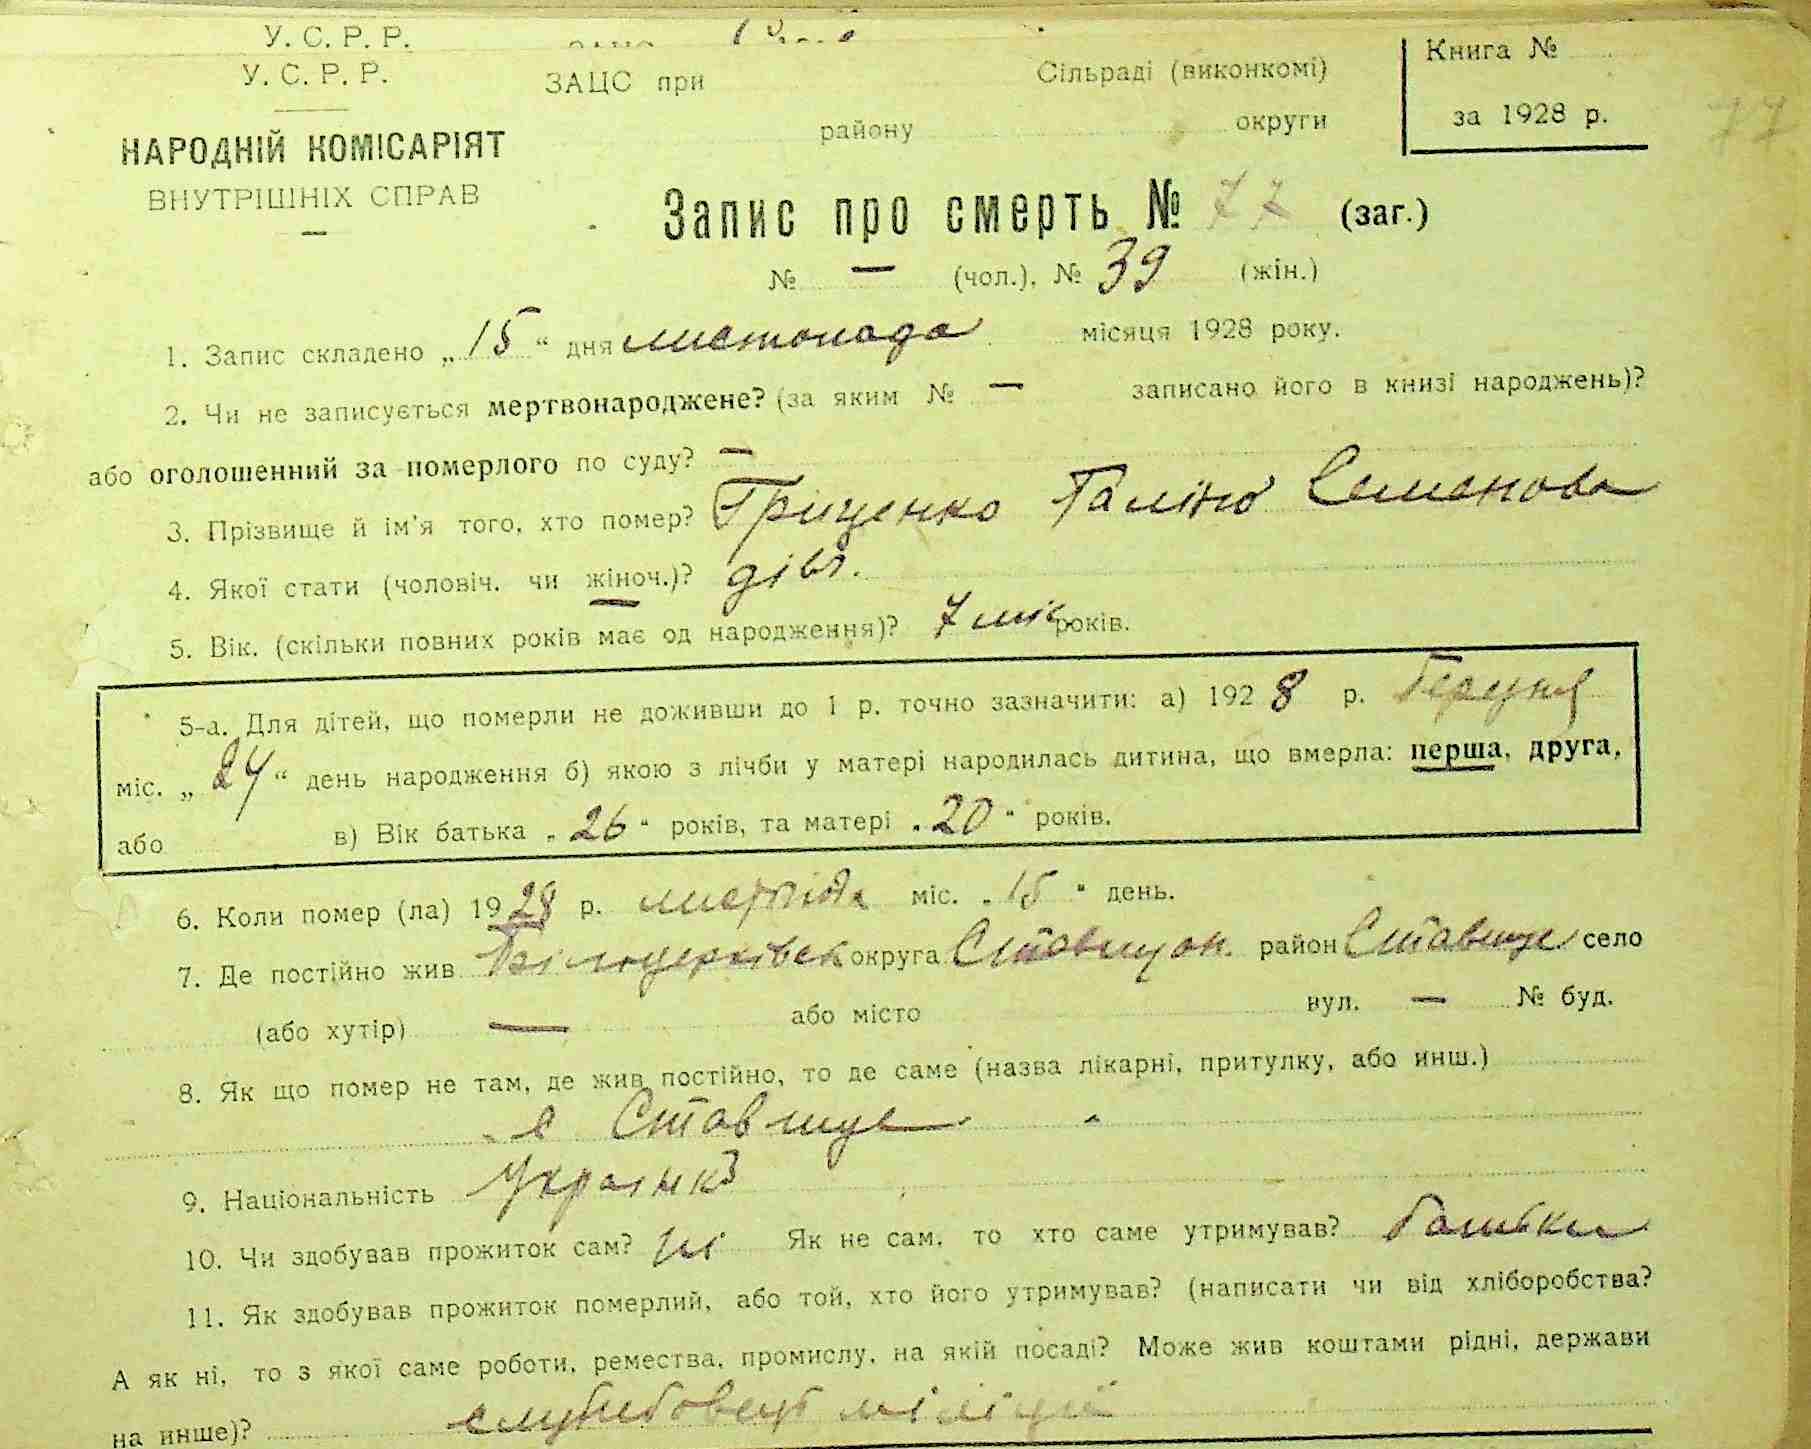 У. С. Р. Р.
У. С. Р. Р.
ЗАЦС при Сільраді (виконкомі)
району округи
Книга №
за 1928 р.
77
НАРОДНІЙ КОМІСАРІЯТ
ВНУТРІШНІХ СПРАВ
Запис про смерть № 77 (заг.)
№ — (чол.), № 39 (жін.)
1. Запис складено „15“ дня листопада місяця 1928 року.
2. Чи не записується мертвонароджене? (за яким № — записано його в книзі народжень)?
або оголошенний за померлого по суду? —
3. Прізвище й ім'я того, хто помер? Гриценко Галіна Семенова
4. Якої стати (чоловіч. чи жіноч.)? дівч.
5. Вік. (скільки повних років має од народження)? 7 міс років.
5-а. Для дітей, що померли не доживши до 1 р. точно зазначити: а) 1928 р.
міс. „24“ день народження б) якою з лічби у матері народилась дитина, що вмерла: перша, друга,
або в) Вік батька „26“ років, та матері „20“ років.
6. Коли помер (ла) 1928 р. листопада міс. „15“ день.
7. Де постійно жив Білоцерківськ округа Ставищан. район Ставище село
(або хутір) — або місто вул. — № буд.
8. Як що помер не там, де жив постійно, то де саме (назва лікарні, притулку, або инш.)
с Ставище
9. Національність Українка
10. Чи здобував прожиток сам? ні Як не сам, то хто саме утримував? батьки
11. Як здобував прожиток померлий, або той, хто його утримував? (написати чи від хліборобства?
А як ні, то з якої саме роботи, ремества, промислу, на якій посаді? Може жив коштами рідні, держави
на инше)? міліції